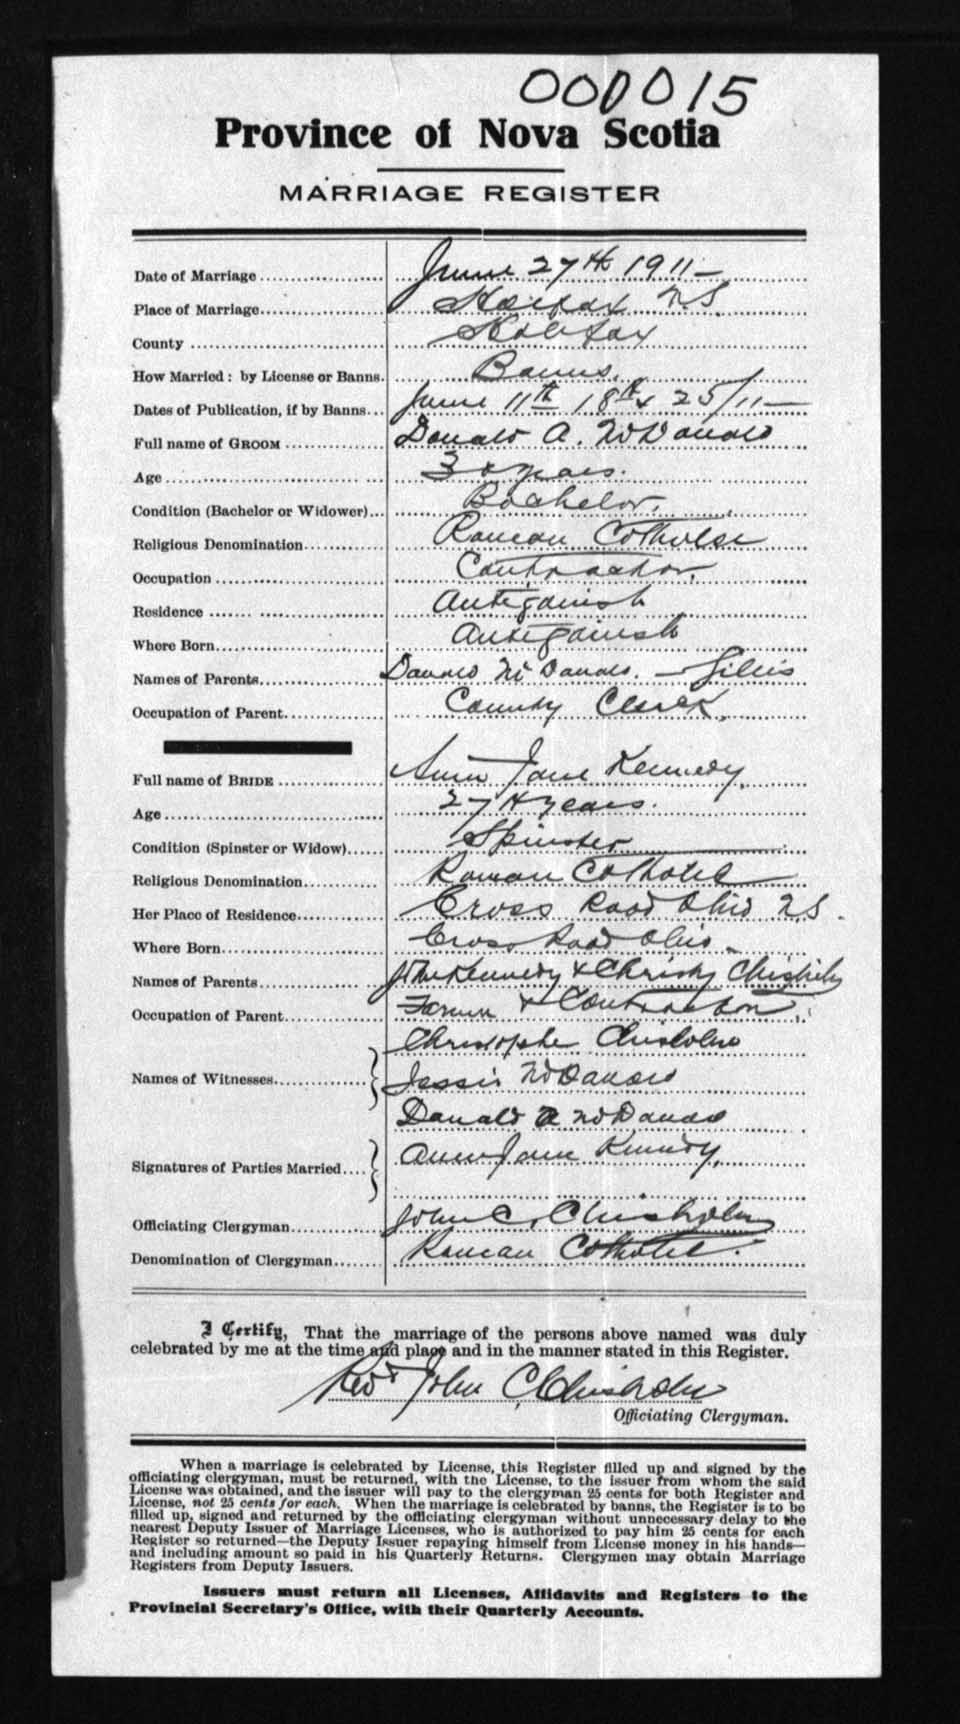 000015
Province of Nova Scotia
MARRIAGE REGISTER
Date of Marriage June 27th 1911
Place of Marriage Halifax N.S.
County Halifax
How Married: by License or Banns. Banns.
Dates of Publication, if by Banns June 11th 18th & 25/11
Full name of GROOM Donald A. McDonald
Age years.
Condition (Bachelor or Widower) Bachelor.
Religious Denomination Roman Catholic
Occupation Contractor.
Residence Antigonish
Where Born Antigonish
Names of Parents Donald McDonald. — Gillis
Occupation of Parent County Clerk.
Full name of BRIDE Ann Jane Kennedy.
Age 27 years.
Condition (Spinster or Widow) Spinster
Religious Denomination Roman Catholic
Her Place of Residence Cross Road Ohio N.S.
Where Born Cross Road Ohio
Names of Parents Kennedy & Christy Chisholm
Occupation of Parent Farmer & Contractor.
Christopher Chisholm
Names of Witnesses Jessie McDonald
Donald A McDonald
Signatures of Parties Married Ann Jane Kennedy.
Officiating Clergyman John C. Chisholm
Denomination of Clergyman Roman Catholic.
I Certify, That the marriage of the persons above named was duly
celebrated by me at the time and place and in the manner stated in this Register.
Revd John C Chisholm
Officiating Clergyman.
When a marriage is celebrated by License, this Register filled up and signed by the
officiating clergyman, must be returned, with the License, to the issuer from whom the said
License was obtained, and the issuer will pay to the clergyman 25 cents for both Register and
License, not 25 cents for each. When the marriage is celebrated by banns, the Register is to be
filled up, signed and returned by the officiating clergyman without unnecessary delay to the
nearest Deputy Issuer of Marriage Licenses, who is authorized to pay him 25 cents for each
Register so returned—the Deputy Issuer repaying himself from License money in his hands—
and including amount so paid in his Quarterly Returns. Clergymen may obtain Marriage
Registers from Deputy Issuers.
Issuers must return all Licenses, Affidavits and Registers to the
Provincial Secretary's Office, with their Quarterly Accounts.